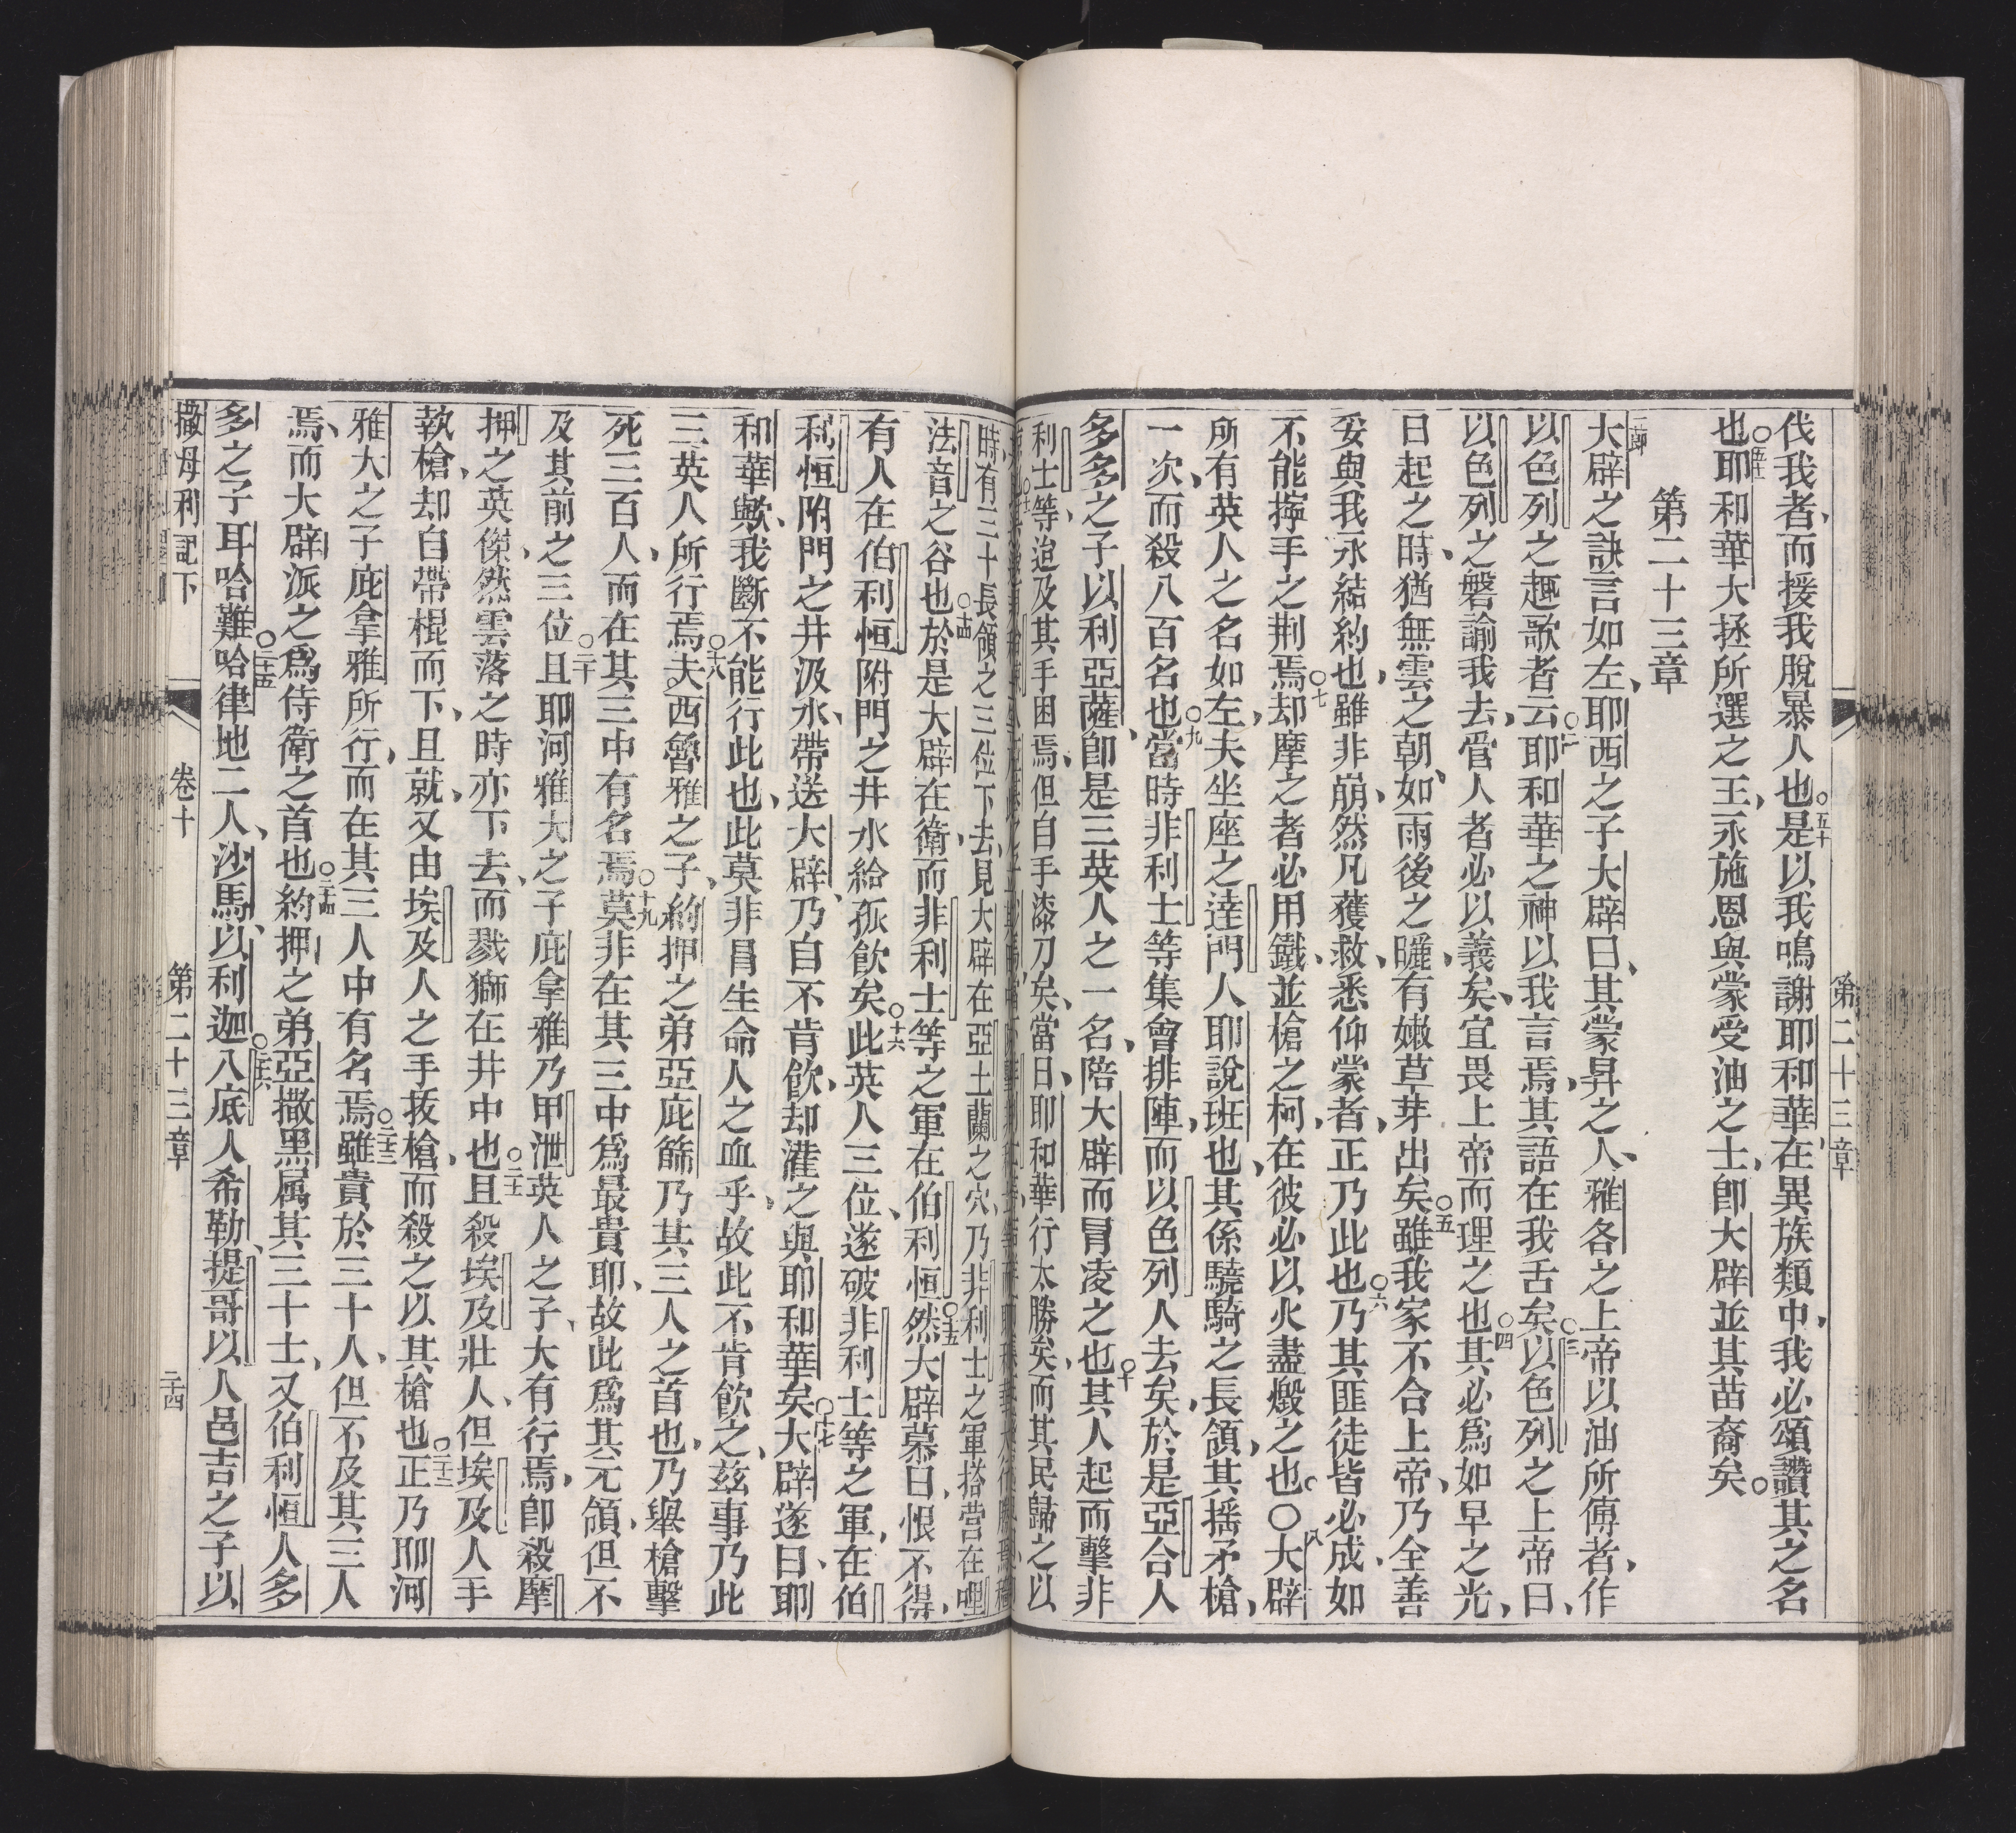 第二十三章
伐我者、而援我脫暴人也○五十是以我鳴謝耶和華、在異族類中、我必頌讚其之名
也○五十一耶和華大拯所選之王、永施恩與蒙受油之士、卽大辟並其苗裔矣。
第二十三章
一卽大辟之訣言如左、耶西之子大辟曰、其蒙昇之人、雅各之上帝以油所傅者、作
以色列之趣歌者云○二耶和華之神以我言焉、其語在我舌矣○三以色列之上帝曰、
以色列之磐諭我去、管人者必以義矣、宜畏上帝而理之也○四其必爲如早之光、
日起之時、猶無雲之朝、如雨後之曬、有嫩草芽出矣○五雖我家不合上帝、乃全善
妥與我永結約也、雖非崩、然凡獲救、悉仰蒙者、正乃此也○六乃其匪徒皆必成如
不能擰手之荆焉○七却摩之者必用鐵、並槍之柯、在彼必以火盡燬之也。○八大辟
所有英人之名如左、夫坐座之達門人耶說班也、其係驍騎之長領、其搖矛槍、
一次、而殺八百名也○九當時非利士等集會排陣、而以色列人去矣、於是亞合人
多多之子以利亞薩、卽是三英人之一名、陪大辟而冒凌之也○十其人起而擊非
利士等、迫及其手困焉、但自手漆刀矣、當日、耶和華行太勝矣、而其民歸之以
時、有三十長領之三位下去、見大辟在亞土蘭之穴、乃非利士之軍搭营在哩
法音之谷也○十四於是大辟在衛、而非利士等之軍在伯利恒○十五然大辟慕曰、恨不得、
有人在伯利恒附門之井水給孤飲矣○十六此英人三位、遂破非利士等之軍、在伯
利恒附門之井汲水、帶送大辟、乃自不肯飲、却灌之與耶和華矣○十七大辟遂曰、耶
和華歟、我斷不能行此也、此莫非冒生命人之血乎、故此不肯飲之、兹事乃此
三英人所行焉○十八夫西魯雅之子、約押之弟亞庇篩乃其三人之首也、乃舉槍擊
死三百人、而在其三中有名焉○十九莫非在其三中爲最貴耶、故此爲其元領、但不
及其前之三位○二十且耶河雅大之子庇拿雅乃甲泄英人之子、大有行焉、卽殺摩
押之英傑、然雲落之時亦下去、而戮獅在井中也○二十一且殺埃及壯人、但埃及人手
執槍、却自帶棍而下、且就、又由埃及人之手拔槍、而殺之以其槍也○二十二正乃耶河
雅大之子庇拿雅所行、而在其三人中有名焉○二十三雖貴於三十人、但不及其三人
焉、而大辟派之爲侍衛之首也○二十四約押之弟亞撒黑属其三十士、又伯利恒人多
多之子耳哈難○二十五哈律地二人、沙馬、以利迦○二十六八底人希勒、提哥以人邑吉之子以
撒母利記下 卷十 第二十三章 二十四